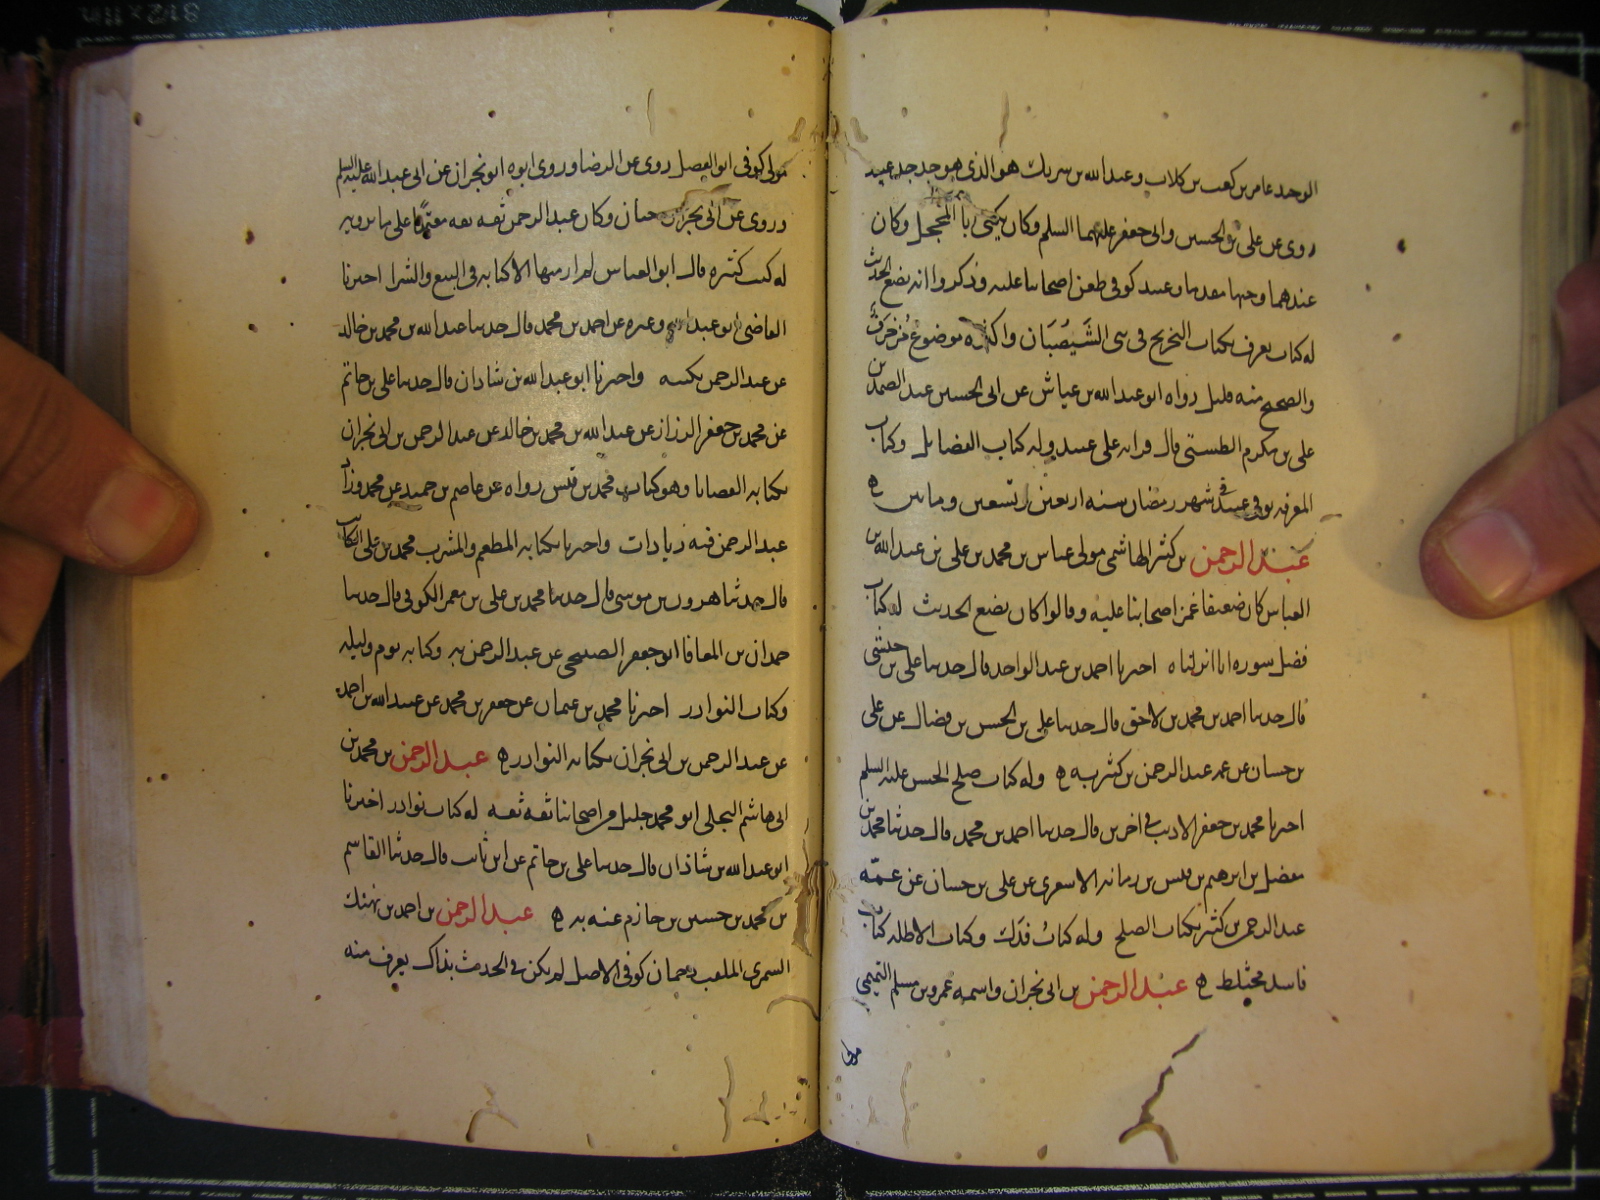 الوحيد عامر بن كعب بن كلاب وعبد الله بن سريك هو الذي هو جد جد عبيد
روى عن على بن الحسين وابى جعفر عليهما السلم وكان يكنى بابا المحجل وكان
عندهما وجيها مقدما وعبيد كوفى طعن اصحابنا عليه وذكروا انه يضع الحديث
له كتاب يعرف بكتاب التخريج فى بنى الشَيصُبَان واكثره موضوع مُزخرَف
والصحيح منه قليل رواه ابو عبد الله بن عياش عن ابى الحسين عبد الصمد بن
على بن مكرم الطستى قال قراته على عبيد وله كتاب الفضايل وكتاب
المعرفه توفى عبيد فى شهر رمضان سنه اربعين وتسعين ومايتين
عبد الرحمن بن كثير الهاشمى مولى عباس بن محمد بن على بن عبد الله بن
العباس كان ضعيفا غمز اصحابنا عليه وقالوا كان يضع الحديث له كتاب
فضل سوره انا انزلناه اخبرنا احمد بن عبد الواحد قال حدثنا على بن حبشى
قال حدثنا احمد بن محمد بن لاحق قال حدثنا على بن الحسن بن فضال عن على
بن حسان عن عمه عبد الرحمن بن كثير به وله كتاب صلح الحسن عليه السلم
اخبرنا محمد بن جعفر الاديب فى اخرين قال حدثنا احمد بن محمد قال حدثنا محمد بن
مفضل بن ابرهيم بن قيس بن رمانه الاشعرى عن على بن حسان عن عمّه
عبد الرحمن بن كثير بكتاب الصلح وله كتاب فدك وكتاب الاظله كتاب
فاسد مختلط عبد الرحمن بن ابى نجران واسمه عمرو بن مسلم التميمى
مولى
مولى كوفى ابو الفضل روى عن الرضا وروى ابوه ابو نجران عن ابى عبد الله عليه السلم
وروى عن ابى نجران حنان وكان عبد الرحمن ثقه ثقه معتمدا على ما يرويه
له كتب كثيره قال ابو العباس لم ار منها الا كتابه فى البيع والشرا اخبرنا
القاضى ابو عبد الله وغيره عن احمد بن محمد قال حدثنا عبد الله بن محمد بن خالد
عن عبد الرحمن بكتبه واخبرنا ابو عبد الله بن شاذان قال حدثنا على بن حاتم
عن محمد بن جعفر الرزاز عن عبد الله بن محمد بن خالد عن عبد الرحمن بن ابى نجران
بكتابه القضايا وهو كتاب محمد بن قيس رواه عن عاصم بن حميد عن محمد وزاد
عبد الرحمن فيه زيادات واخبرنا بكتابه المطعم والمشرب محمد بن على الكاتب
قال حدثنا هرون بن موسى قال حدثنا محمد بن على بن معمر الكوفى قال حدثنا
حمدان بن المعافا ابو جعفر الصبيحى عن عبد الرحمن به وكتابه يوم وليله
وكتاب النوادر اخبرنا محمد بن عثمان عن جعفر بن محمد عن عبيد الله بن احمد
عن عبد الرحمن بن ابى نجران بكتابه النوادر عبد الرحمن بن محمد بن
ابى هاشم البجلى ابو محمد جليل من اصحابنا ثقه ثقه له كتاب نوادر اخبرنا
ابو عبد الله بن شاذان قال حدثنا على بن حاتم عن ابن ثابت قال حدثنا القاسم
بن محمد بن حسين بن حازم عنه به عبد الرحمن بن احمد بن نهيك
السمرى الملقب دحمان كوفى الاصل لم يكن فى الحديث بذاك يعرف منه